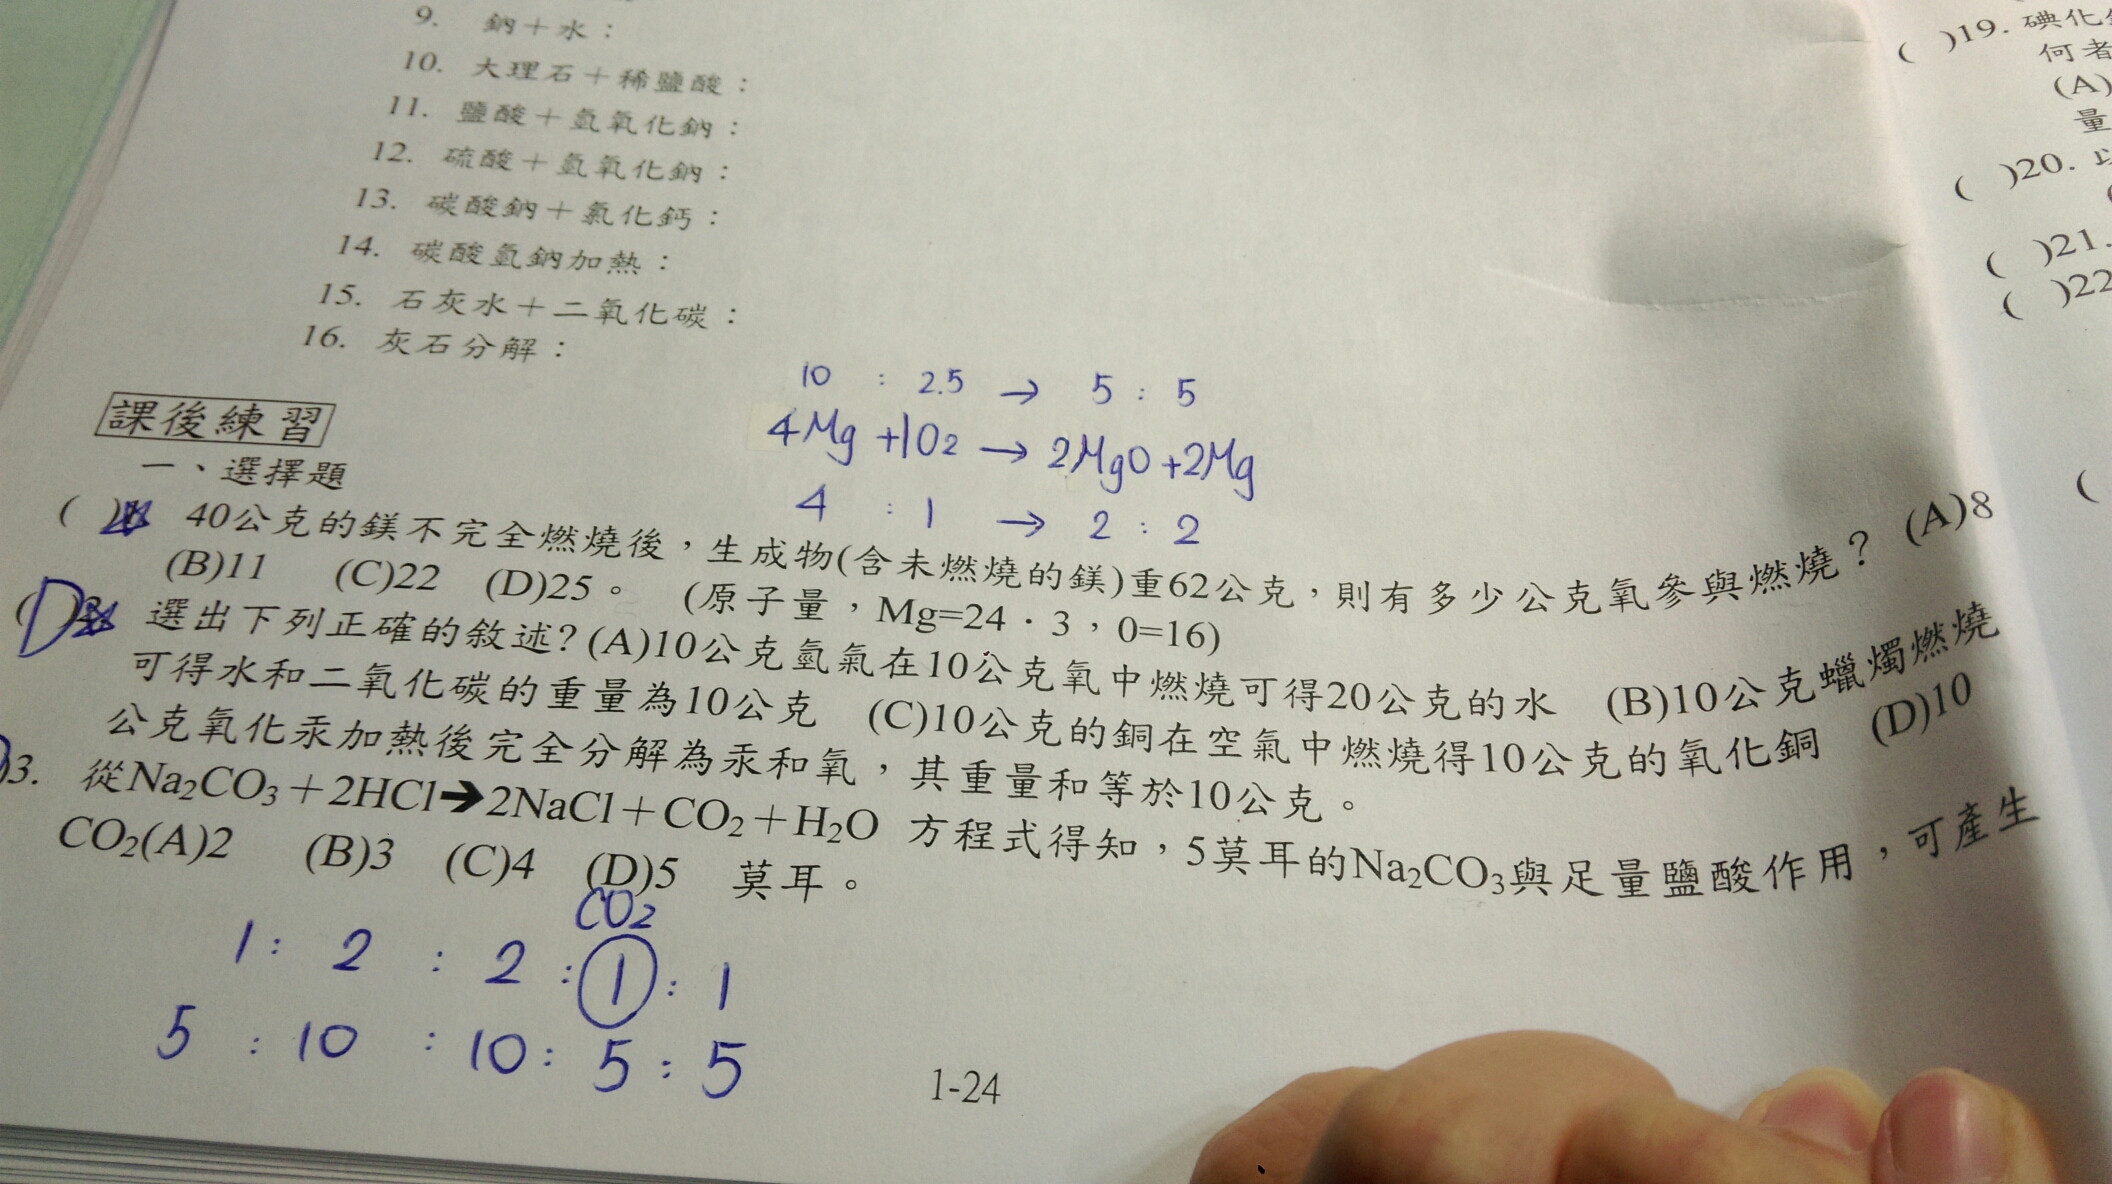 9. 鈉＋水：
10. 大理石＋稀鹽酸：
11. 鹽酸＋氫氧化鈉：
12. 硫酸＋氫氧化鈉：
13. 碳酸鈉＋氯化鈣：
14. 碳酸氫鈉加熱：
15. 石灰水＋二氧化碳：
16. 灰石分解：
10 : 2.5 → 5 : 5
4Mg +1O2 → 2MgO +2Mg
4 : 1 → 2 : 2
課後練習
一、選擇題
( ) 40公克的鎂不完全燃燒後，生成物(含未燃燒的鎂)重62公克，則有多少公克氧參與燃燒？ (A)8
(B)11 (C)22 (D)25。 (原子量，Mg=24．3，0=16)
(D)2. 選出下列正確的敘述?(A)10公克氫氣在10公克氧中燃燒可得20公克的水 (B)10公克蠟燭燃燒
可得水和二氧化碳的重量為10公克 (C)10公克的銅在空氣中燃燒得10公克的氧化銅 (D)10
公克氧化汞加熱後完全分解為汞和氧，其重量和等於10公克。
)3. 從Na₂CO₃＋2HCl➔2NaCl＋CO₂＋H₂O 方程式得知，5莫耳的Na₂CO₃與足量鹽酸作用，可產生
CO₂(A)2 (B)3 (C)4 (D)5 莫耳。
CO2
1 : 2 : 2 : 1 : 1
5 : 10 : 10 : 5 : 5
1-24
( )19. 碘化
何者
(A)
量
( )20. 以
( )21.
( )22
(